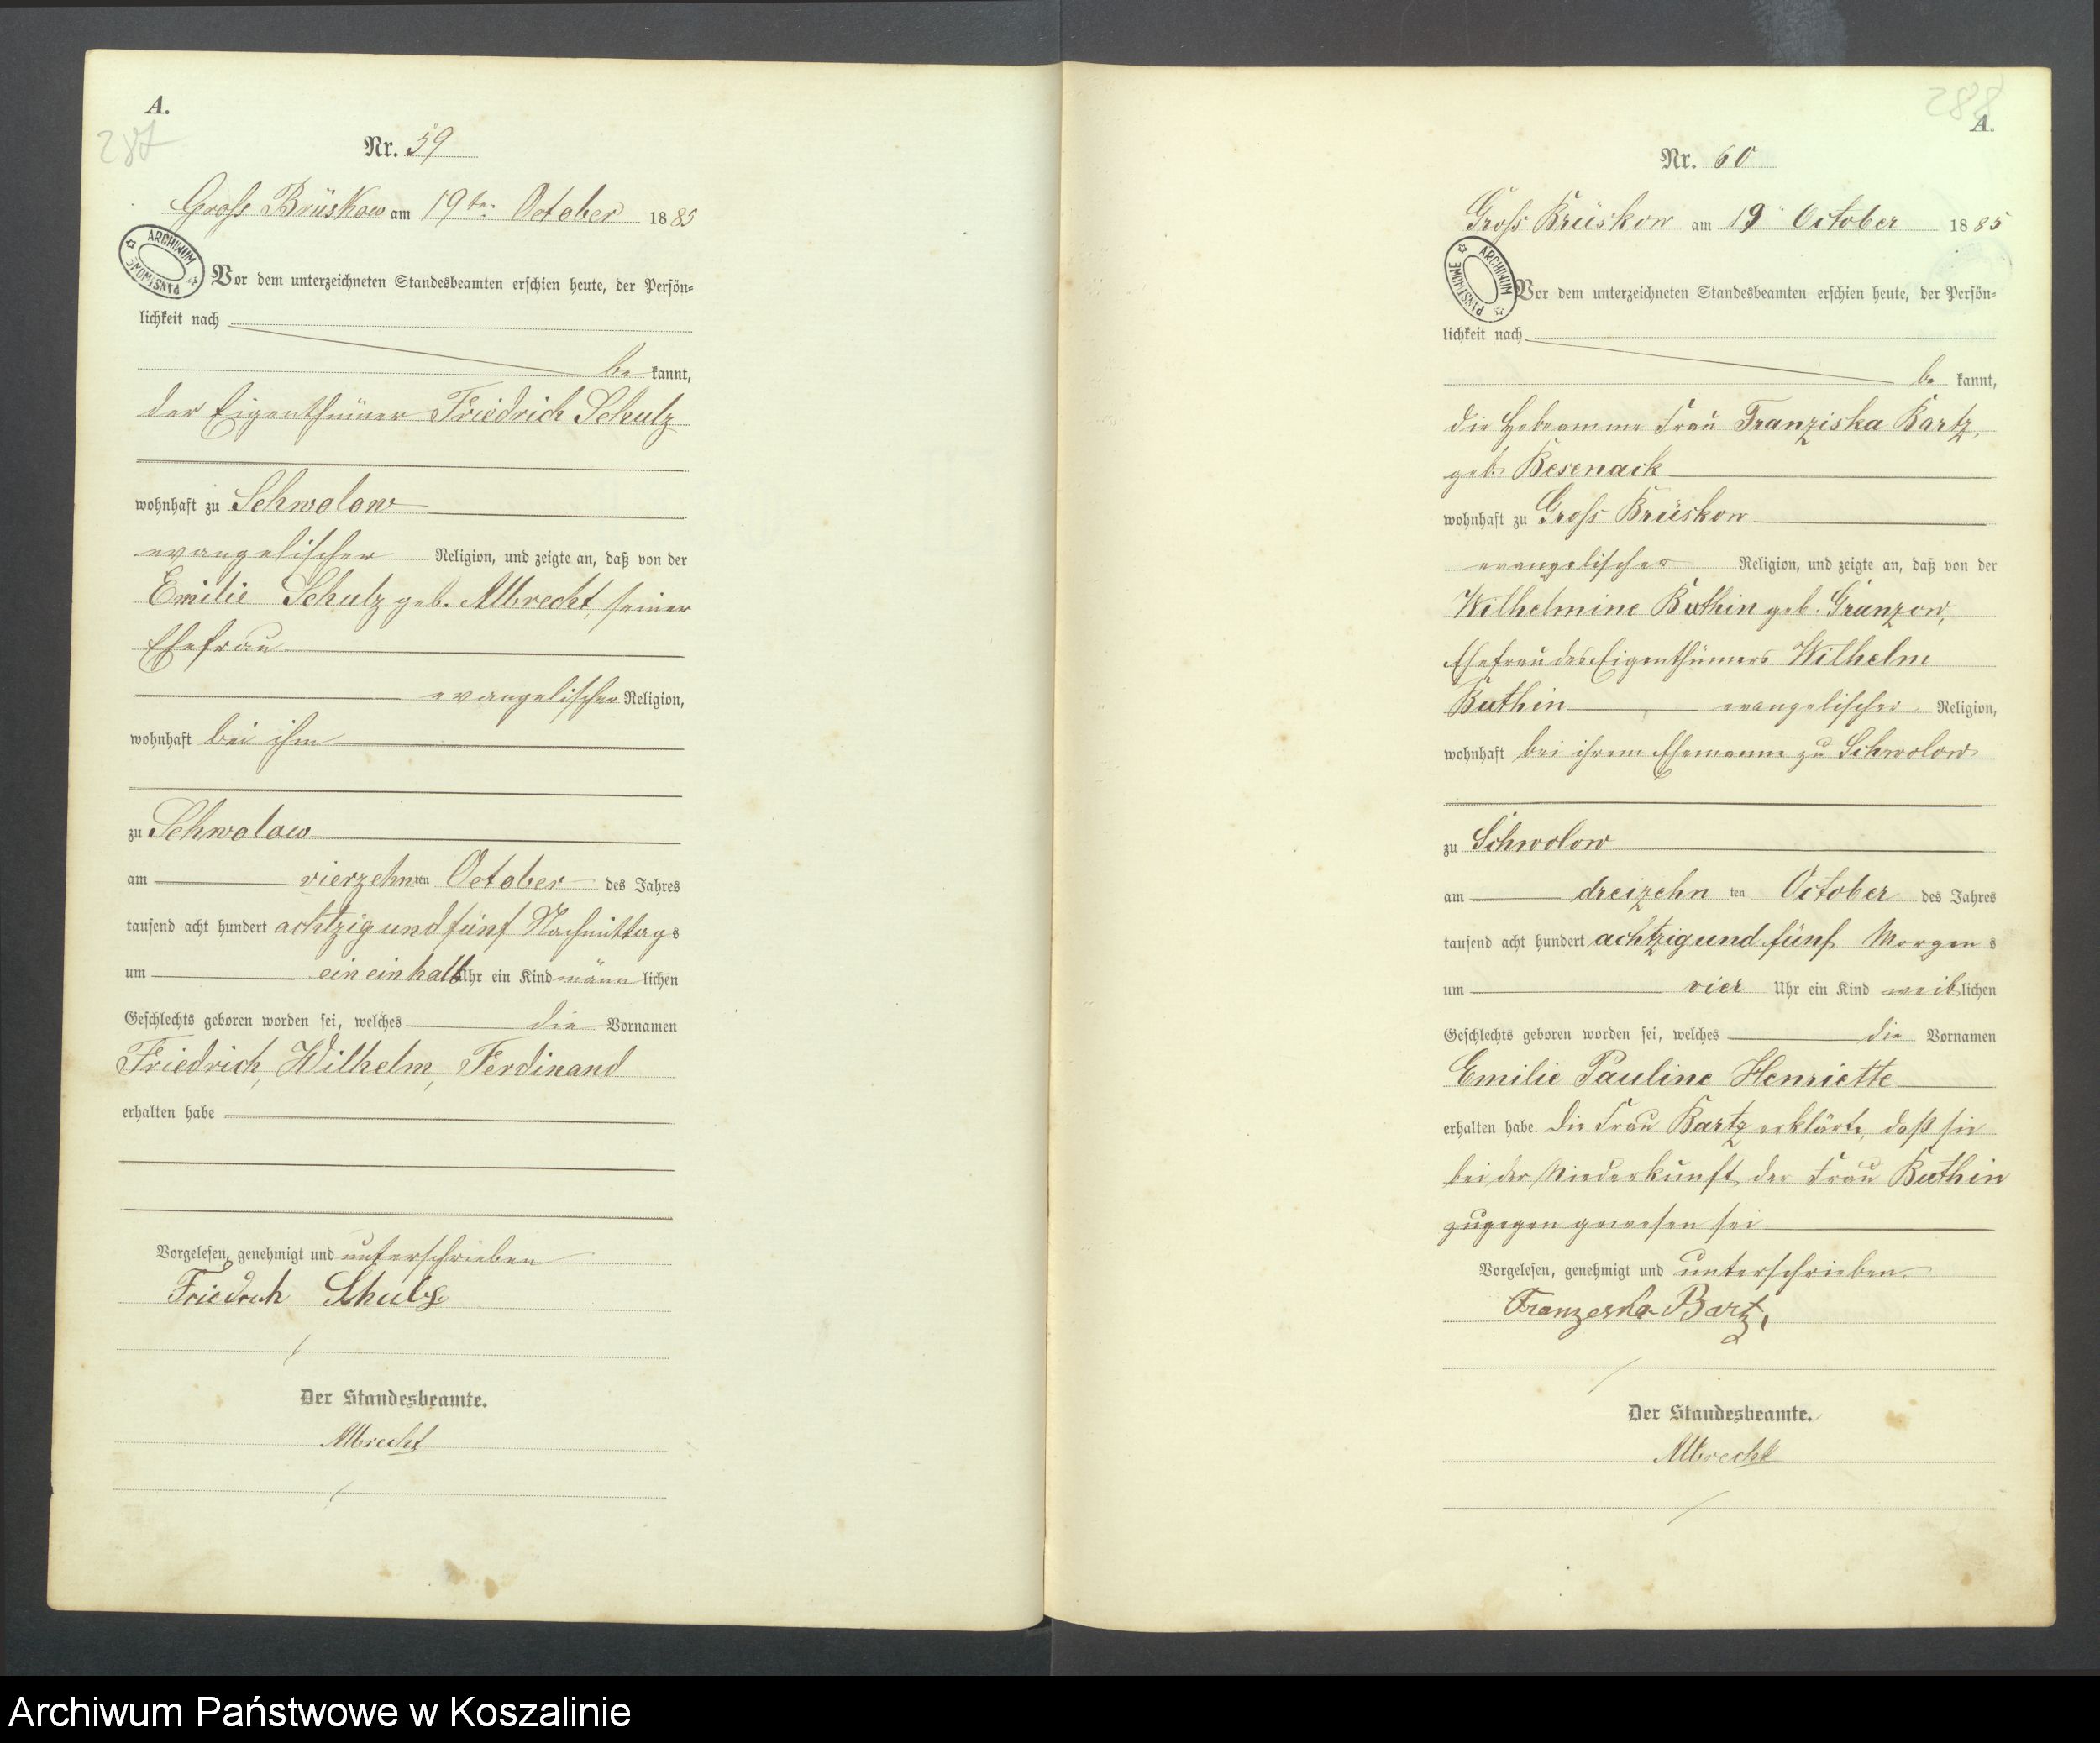 A.
287
Nr. 59
Groß Brüskow am 19ten October 1885
ARCHIWUM PAŃSTWOWE
Vor dem unterzeichneten Standesbeamten erschien heute, der Persön-
lichkeit nach
be kannt,
der Eigenthümer Friedrich Schulz
wohnhaft zu Schwolow
evangelischer Religion, und zeigte an, daß von der
Emilie Schulz geb. Albrecht, seiner
Ehefrau
evangelischer Religion,
wohnhaft bei ihm
zu Schwolow
am vierzehn ten October des Jahres
tausend acht hundert achtzig und fünf Nachmittags
um ein einhalb Uhr ein Kind männ lichen
Geschlechts geboren worden sei, welches die Vornamen
Friedrich, Wilhelm, Ferdinand
erhalten habe
Vorgelesen, genehmigt und unterschrieben
Friedrich Schulz
Der Standesbeamte.
Albrecht
288
A.
Nr. 60
Groß Brüskow am 19 October 1885
ARCHIWUM PAŃSTWOWE
Vor dem unterzeichneten Standesbeamten erschien heute, der Persön-
lichkeit nach
be kannt,
die Hebeamme Frau Franziska Bartz,
geb. Besenack
wohnhaft zu Groß Brüskow
evangelischer Religion, und zeigte an, daß von der
Wilhelmine Buthin geb. Granzow,
Ehefrau des Eigenthümers Wilhelm
Buthin evangelischer Religion,
wohnhaft bei ihrem Ehemanne zu Schwolow
zu Schwolow
am dreizehn ten October des Jahres
tausend acht hundert achtzig und fünf Morgens
um vier Uhr ein Kind weib lichen
Geschlechts geboren worden sei, welches die Vornamen
Emilie Pauline Henriette
erhalten habe. Die Frau Bartz erklärte, daß sie
bei der Niederkunft der Frau Buthin
zugegen gewesen sei
Vorgelesen, genehmigt und unterschrieben.
Franzeska Bartz,
Der Standesbeamte.
Albrecht
Archiwum Państwowe w Koszalinie